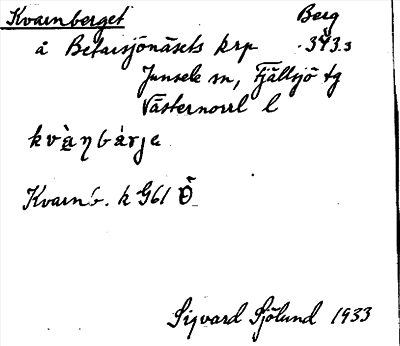 Kvarnberget Berg
å Betarsjönäsets krp 373.3
Junsele sn, Fjällsjö tg
Västernorrl l
kvàṉŋbárje
Kvarnb. k G61 Ö
Sigvard Sjölund 1933